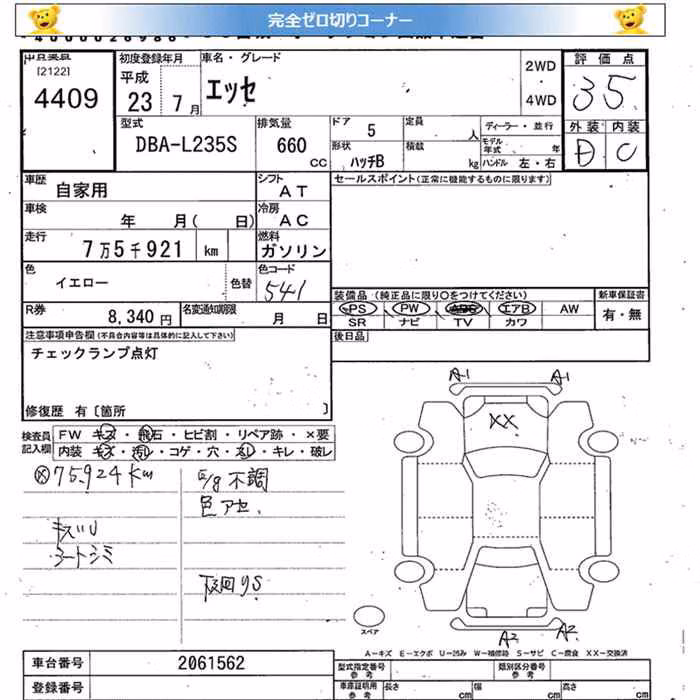 完全ゼロ切りコーナー
[2122]
4409
初度登録年月
平成
23 7月
車名・グレード
エッセ
2WD
・
4WD
評価点
35
外装 内装
D C
型式
DBA-L235S
排気量
660
CC
ドア 5
形状
ハッチB
定員
人
積載
kg
ディーラー・並行
モデル年式 年
ハンドル 左・右
車歴
自家用
シフト
AT
セールスポイント(正常に機能するものに限ります)
車検
年 月( 日)
冷房
AC
走行
7万5千921 km
燃料
ガソリン
色
イエロー
色替
色コード
541
装備品 (純正品に限り○をつけてください)
新車保証書
PS PW ABS エアB AW
有・無
SR ナビ TV カワ
R券
8,340円
名変通知期限
月 日
後日品
注意事項申告欄(不具合内容等は具体的に記入して下さい)
チェックランプ点灯
修復歴 有〔箇所 〕
検査員記入欄
FW キズ・飛石・ヒビ割・リペア跡・×要
内装 キズ・汚れ・コゲ・穴・スレ・キレ・破レ
75,924km
E/g不調
色アセ
キズU
シートシミ
下回りS
A1
A1
XX
A2
A2
スペア
A-キズ E-エクボ U-凹み W-補修跡 S-サビ C-腐食 XX-交換済
車台番号
2061562
型式指定番号
参考
類別区分番号
参考
登録番号
車庫証明用
参考
長さ cm
幅 cm
高さ cm